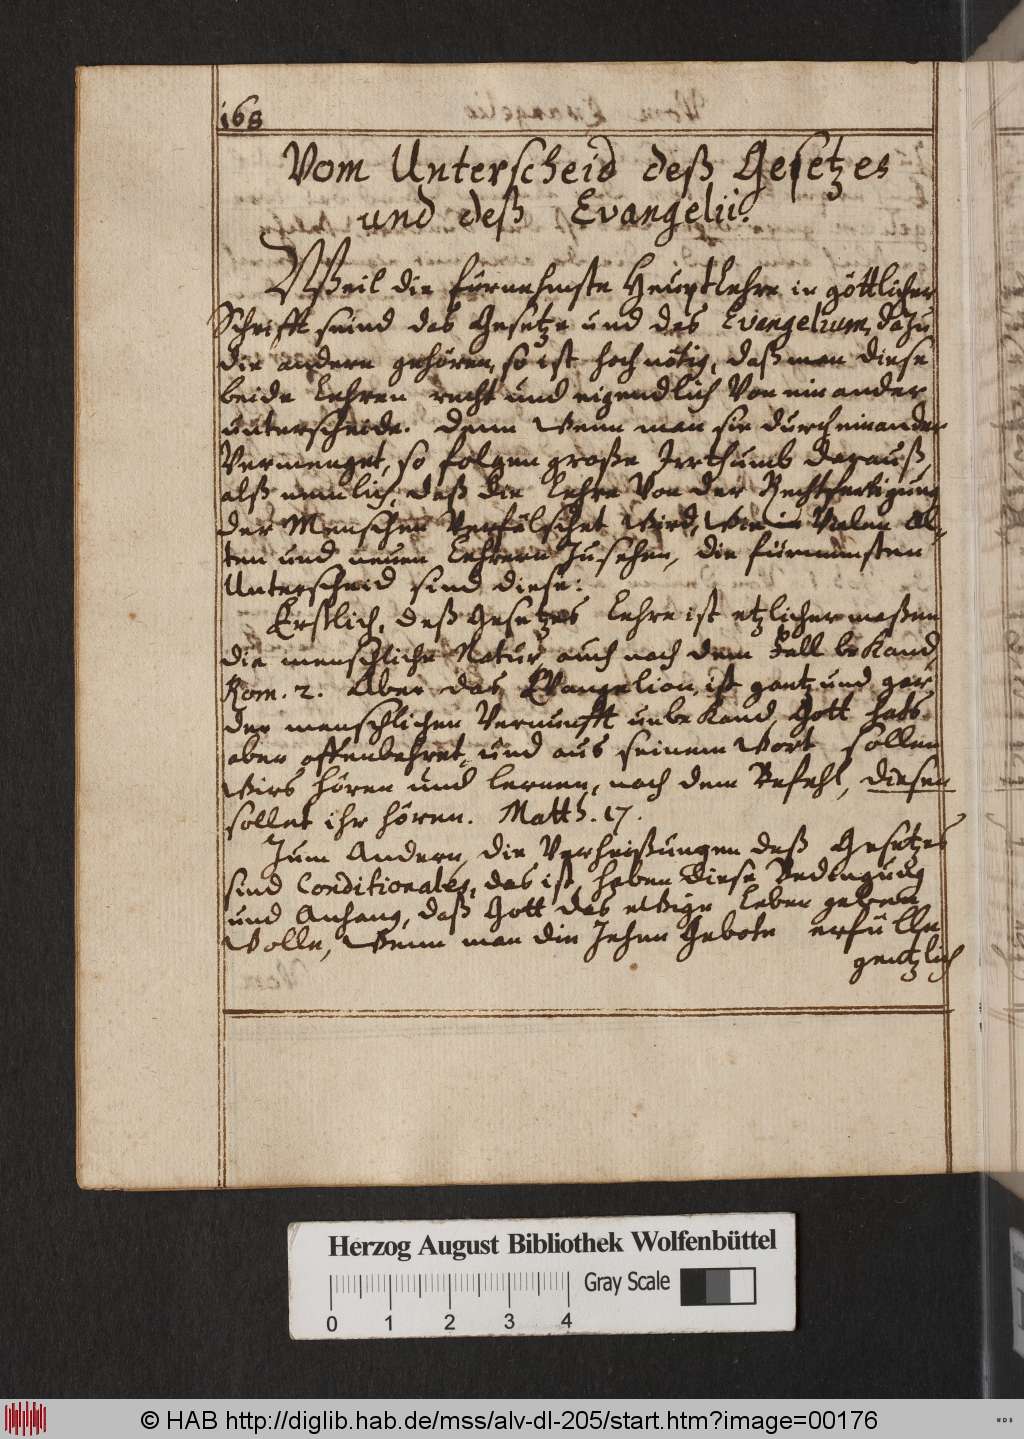 168
Vom Unterscheid deß Gesetzes
und deß Evangelii.
Weil die fürnehmste Heuptlehre in göttlicher
Schrifft seind das Gesetze und das Evangelium, dazu
die andern gehören, so ist hoch nötig, daß man diese
beide Lehren recht und eigendlich von ein ander
unterscheide. Denn wenn man sie durch einander
vermenget, so folgen große Irrthumb darauß,
alß nemlich, daß die Lehre von der Rechtfertigung
der Menschen verfälschet wird, wie in vielen Al-
ten und neuen Lehrern zusehen, die fürnemsten
Unterscheid sind diese:
Erstlich, deß Gesetzes Lehre ist etzlicher maßen
die menschliche Natur auch nach dem Fall bekand,
Rom. 2. Aber das Evangelion, ist gantz und gar
der menschlichen Vernunfft unbekand, Gott hats
aber offenbahret, und aus seinem Wort sollen
wirs hören und lernen, nach dem Befehl, diesen
sollet ihr hören. Matth. 17.
Zum Andern, die Verheißungen deß Gesetzes
sind Conditionales, das ist, haben diese Bedingung
und Anhang, daß Gott das ewige Leben geben
wolle, wenn man die Zehen Gebote erfülle
gentzlich
Herzog August Bibliothek Wolfenbüttel
Gray Scale
0 1 2 3 4
© HAB http://diglib.hab.de/mss/alv-dl-205/start.htm?image=00176